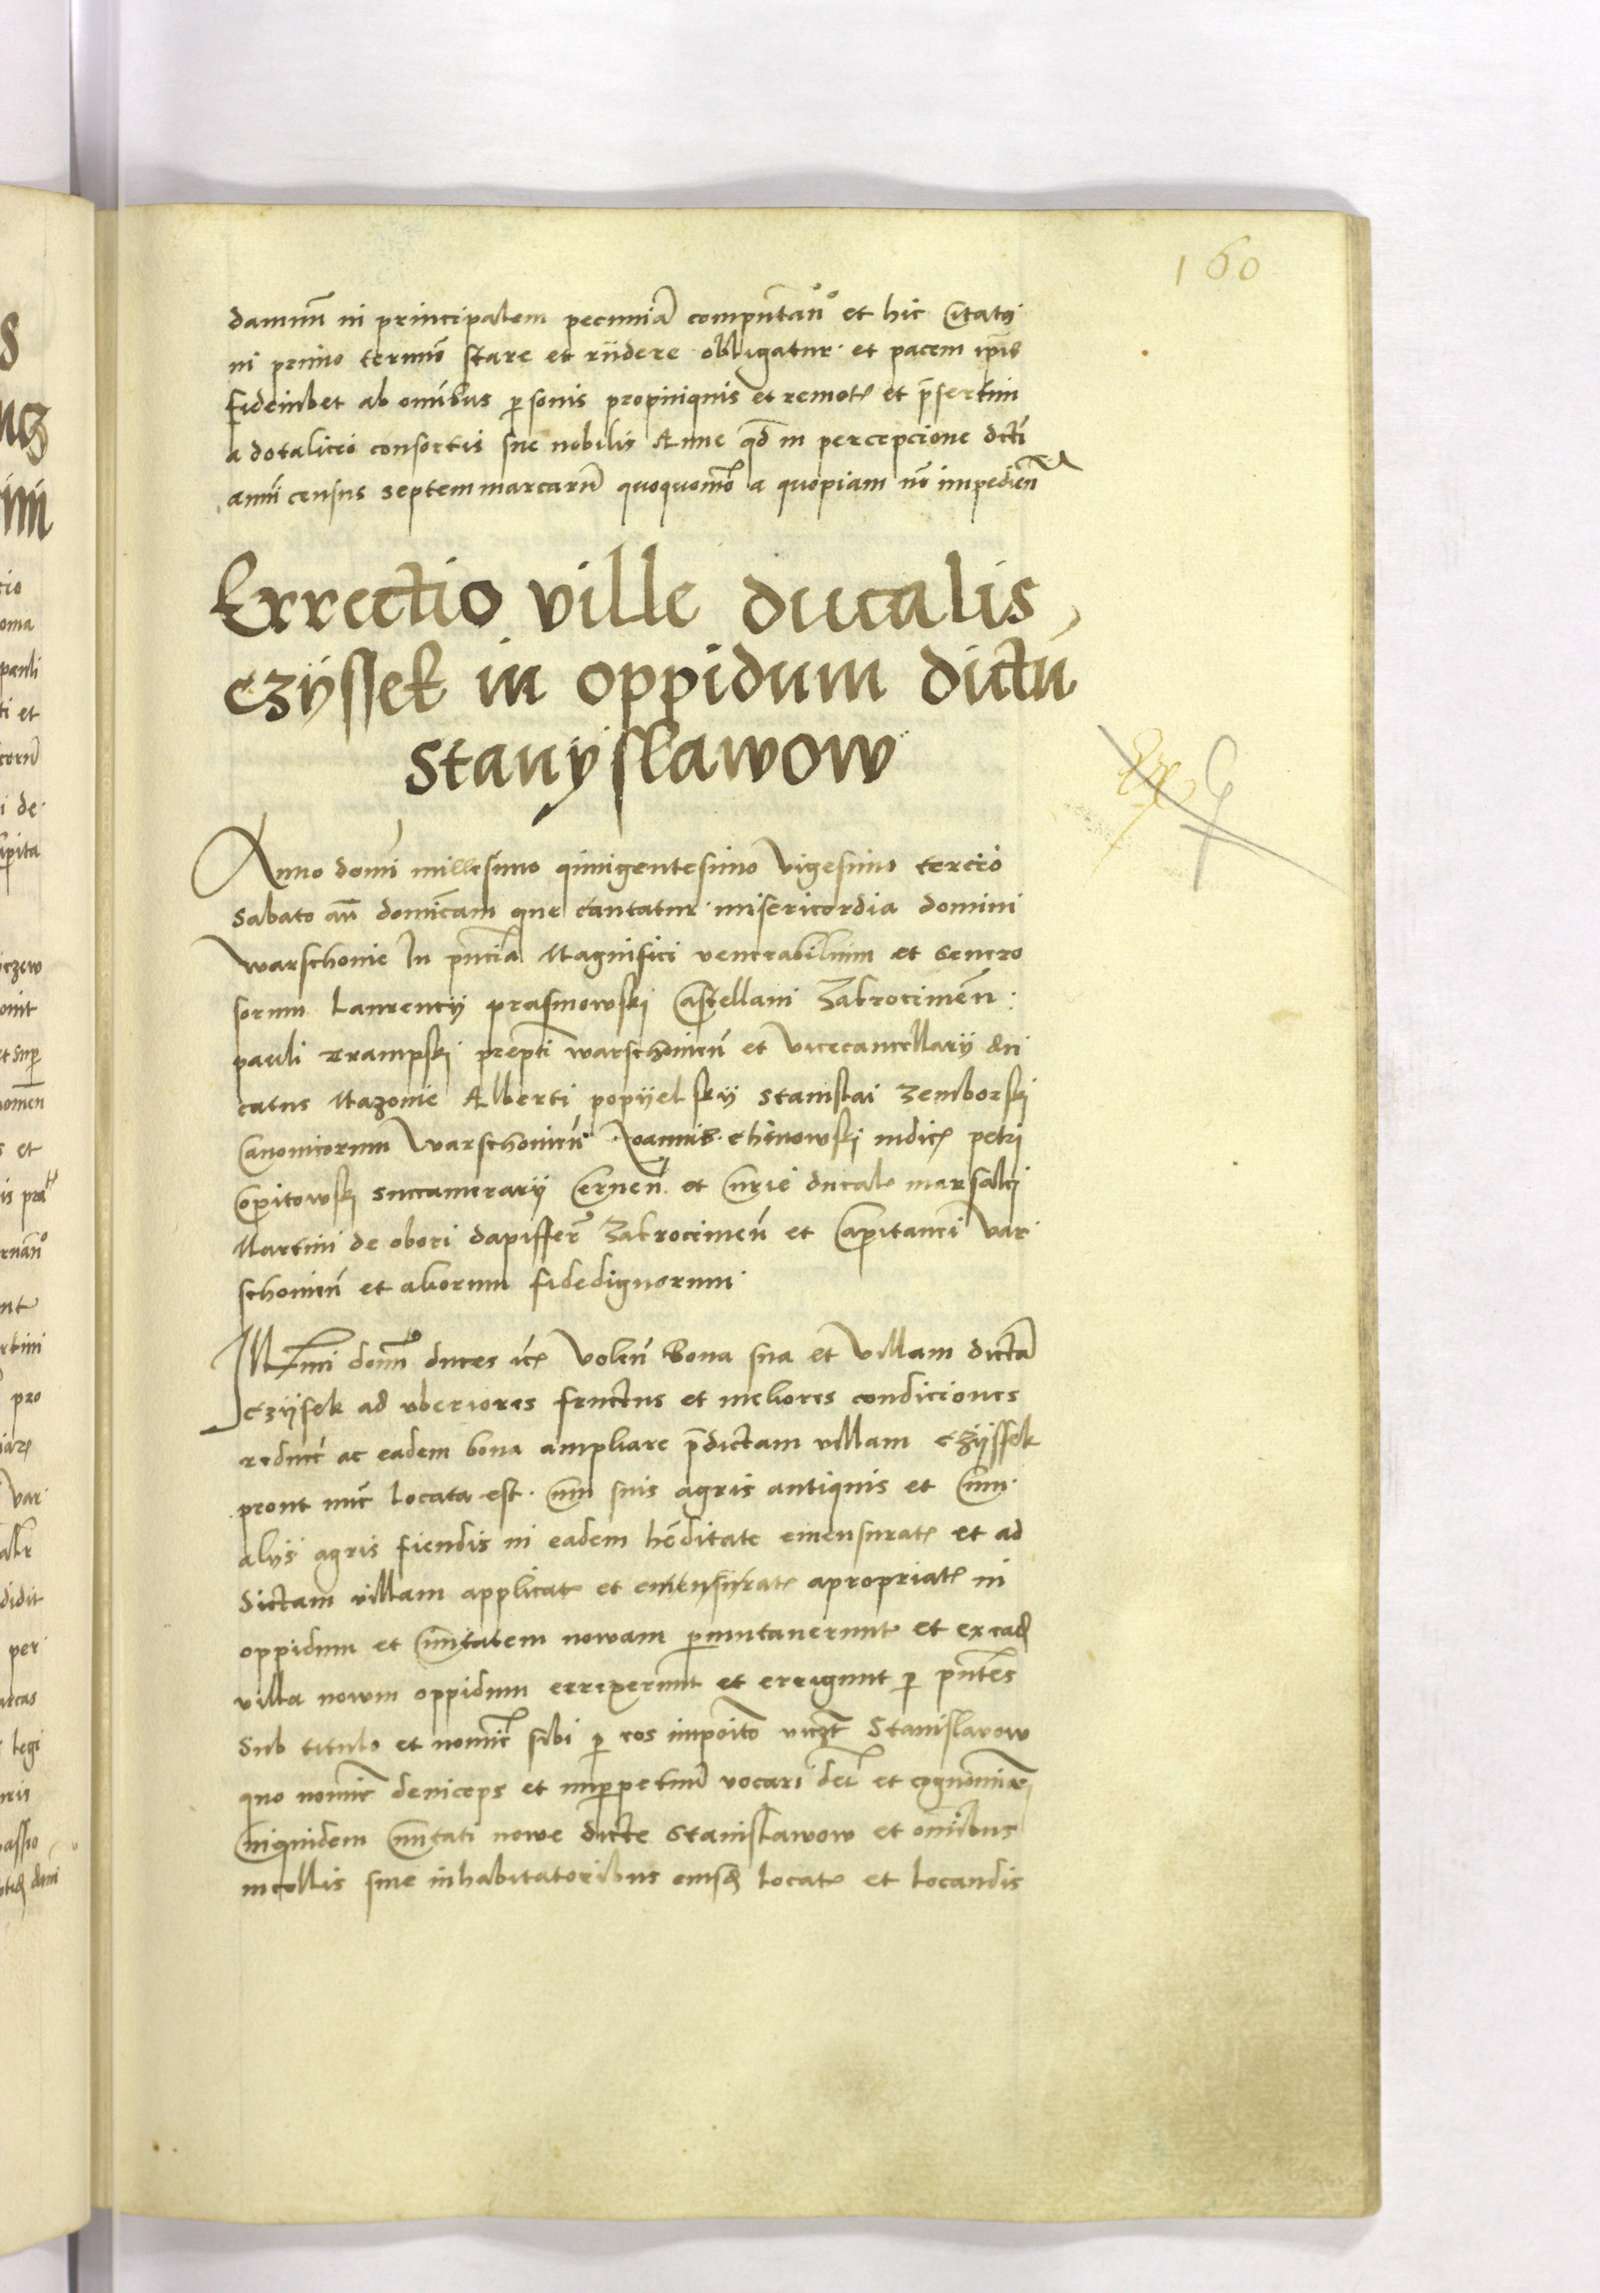 160
damnũ in principalem pecuniã computañ et hic Citatꝯ
in primo termino stare et rñdere obligatur et pacem ipis
fideiubet ab omibus personis propinquis et remotꝭ et p̃sertim
a dotalicio consortis sue nobilis Anne qd in percepcione dicti
anni census septem marcarũ quoquomodo a quopiam nõ impedient
Errectio ville ducalis
Czÿssek in oppidum dictũ
Stanyslawow
Anno domi millesimo quingentesimo Vigesimo tercio
Sabato añ domicam que cantatur misericordia domini
Warschouie In pñcia Magnifici venerabilium et Genero
sorum Laurencÿ prasmowski Castellani Zakrocimeñ
pauli krampski prepti warschouieñ et vicecancellarÿ du
catus Mazouie Alberti popÿelskÿ Stanislai Zemborski
Canonicorum Warschouieñ Ioannis chinowski iudicꝭ petri
Copitowski succamerarÿ Cerneñ et Curie ducalꝭ marsalci
Martini de obori dapifferi Zakrocimeñ et Capitanei var
schouieñ et aliorum fidedignorum
Illmi domi duces etcꝭ Volenñ Bona sua et villam dictã
Czÿsek ad vberiores fructus et meliores condiciones
reducẽ ac eadem bona ampliare p̃dictam villam Czÿssek
prout nuc locata est Cum suis agris antiquis et Cum
alÿs agris fiendis in eadem hẽditate emensuratꝭ et ad
dictam villam applicatꝭ et emensuratꝭ apropriatꝭ in
oppidum et Ciuitatem nowam permutauerunt et ex eadꝫ
villa nowm oppidum errexerunt et errigunt p pñtes
Sub titulo et nomiẽ sibi p eos impoito viczt Stanislawow
quo nomiẽ deniceps et imperpetuũ vocari debꝫ et cognomiãꝭ
Cuiquidem Ciuitati nowe dicte Stanislawow et omibus
incollis siue inhabitatoribus eiusdꝫ locatꝭ et locandis